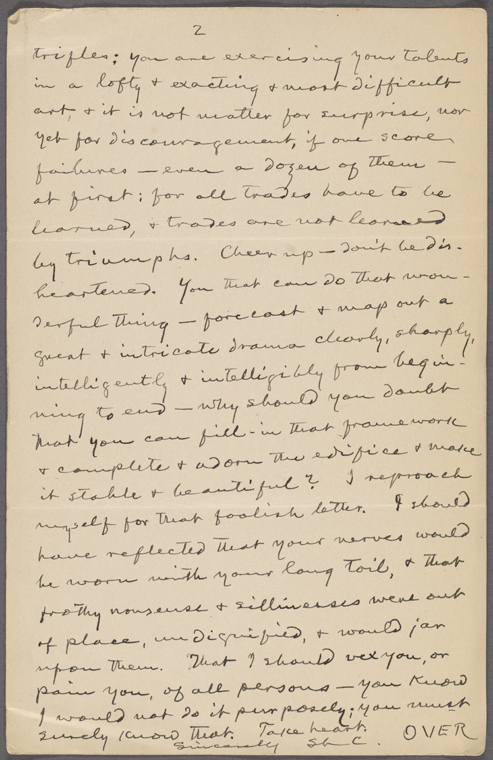 2
trifles; you are exercising your talents
in a lofty & exacting & most difficult
art, & it is not matter for surprise, nor
yet for discouragement, if one score
failures — even a dozen of them —
at first; for all trades have to be
learned, & trades are not learned
by triumphs. Cheer up — don't be dis-
heartened. You that can do that won-
derful thing — forecast & map out a
great & intricate drama clearly, sharply,
intelligently & intelligibly from begin-
ning to end — why should you doubt
that you can fill-in that framework
& complete & adorn the edifice & make
it stable & beautiful? I reproach
myself for that foolish letter. I should
have reflected that your nerves would
be worn with your long toil, & that
frothy nonsense & sillinesses were out
of place, undignified, & would jar
upon them. That I should vex you, or
pain you, of all persons — you know
I would not do it purposely; you must
surely know that. Take heart.
Sincerely SLC.
OVER